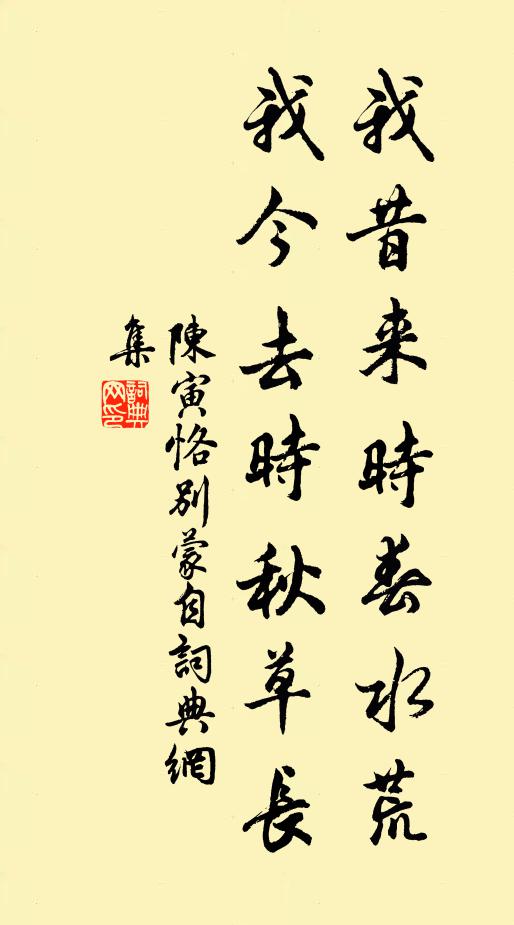 我昔来時春水荒
我今去時秋草長
陳寅恪別蒙自詞典網
集
詞典
网印